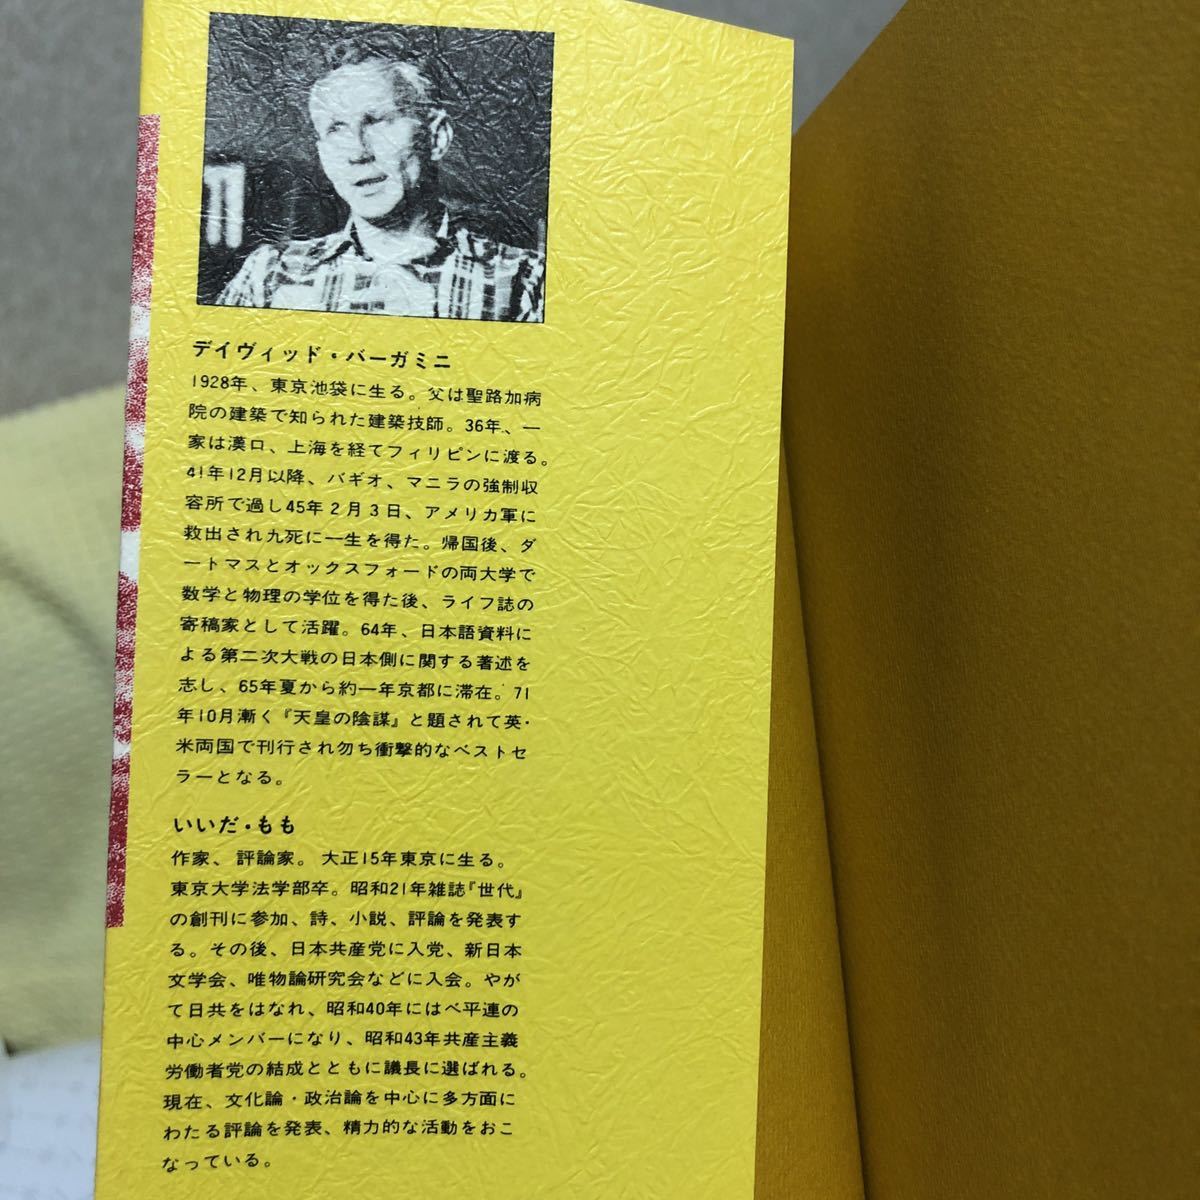 デイヴィッド・バーガミニ
1928年、東京池袋に生る。父は聖路加病
院の建築で知られた建築技師。36年、一
家は漢口、上海を経てフィリピンに渡る。
41年12月以降、バギオ、マニラの強制収
容所で過し45年2月3日、アメリカ軍に
救出され九死に一生を得た。帰国後、ダ
ートマスとオックスフォードの両大学で
数学と物理の学位を得た後、ライフ誌の
寄稿家として活躍。64年、日本語資料に
よる第二次大戦の日本側に関する著述を
志し、65年夏から約一年京都に滞在。71
年10月漸く『天皇の陰謀』と題されて英・
米両国で刊行され勿ち衝撃的なベストセ
ラーとなる。
いいだ・もも
作家、評論家。大正15年東京に生る。
東京大学法学部卒。昭和21年雑誌『世代』
の創刊に参加、詩、小説、評論を発表す
る。その後、日本共産党に入党、新日本
文学会、唯物論研究会などに入会。やが
て日共をはなれ、昭和40年にはベ平連の
中心メンバーになり、昭和43年共産主義
労働者党の結成とともに議長に選ばれる。
現在、文化論・政治論を中心に多方面に
わたる評論を発表、精力的な活動をおこ
なっている。